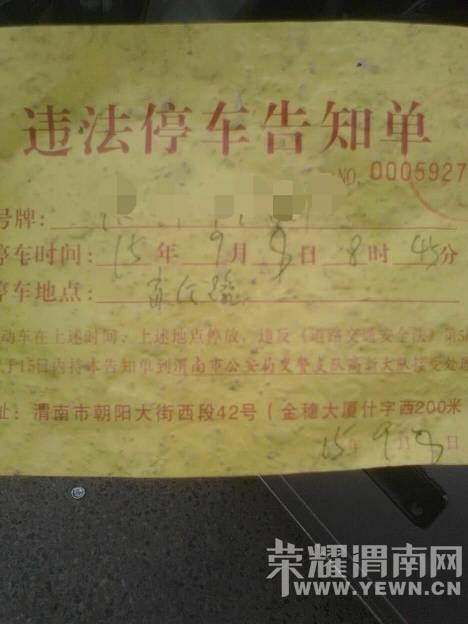 违法停车告知单
NO. 0005927
号牌：
停车时间：15年9月8日8时45分
停车地点：
动车在上述时间、上述地点停放，违反《道路交通安全法》第56
于15日内持本告知单到渭南市公安局交警支队高新大队接受处理
址：渭南市朝阳大街西段42号（金穗大厦什字西200米
15年9月8日
荣耀渭南网
WWW.YEWN.CN